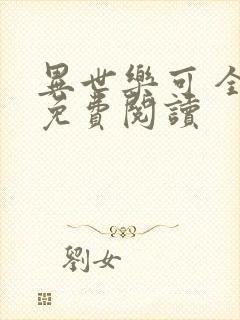 異世樂可全
免費閱讀
劉女